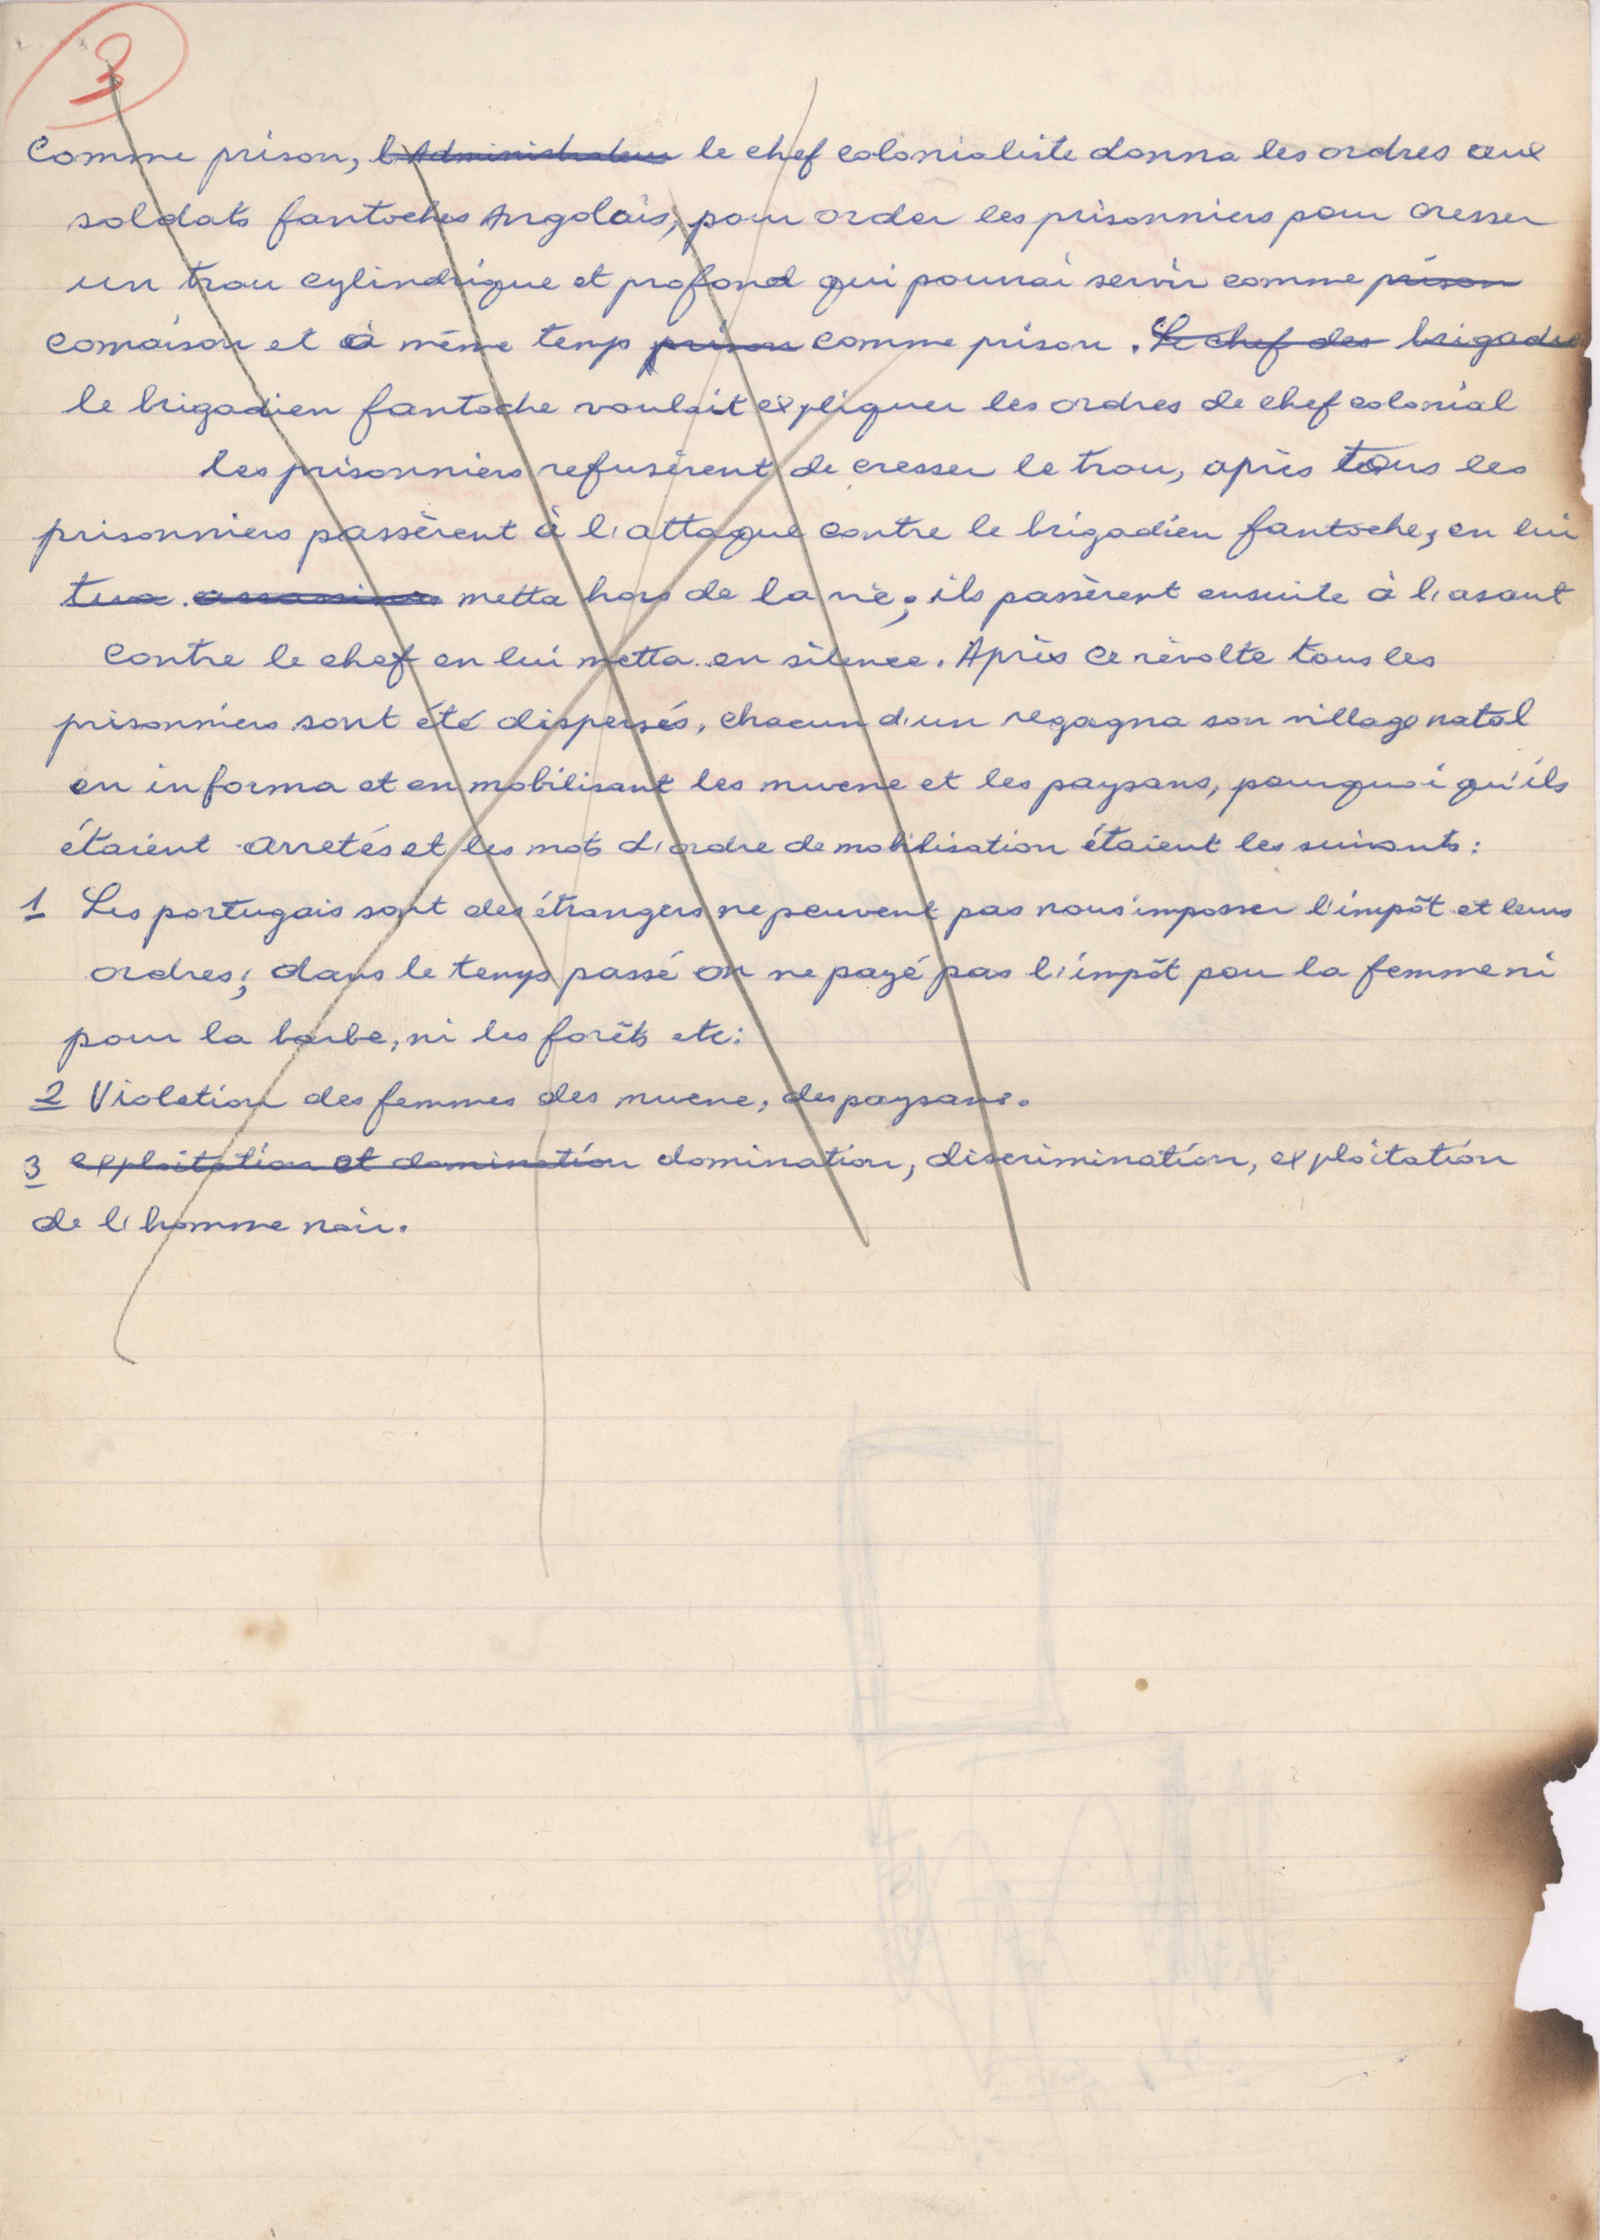 3
Comme prison, l'Administrateur le chef colonialiste donna les ordres aux
soldats fantoches Angolais, pour order les prisonniers pour cresser
un trou cylindrique et profond qui pourrai servir comme prison
comaison et à même temp prison comme prison. Le chef des brigadie
le brigadien fantoche voulait expliquer les ordres de chef colonial
les prisonniers refusèrent de cresser le trou, après tous les
prisonniers passèrent à l'attaque contre le brigadien fantoche, en lui
tua metta hors de la vie; ils passèrent ensuite à l'asaut
contre le chef en lui metta en silence. Après ce révolte tous les
prisonniers sont été dispersés, chacun d'un regagna son village natal
en informa et en mobilisant les muene et les paysans, pourquoi qu'ils
étaient arretés et les mots d'ordre de mobilisation étaient les suivants:
1 Les portugais sont des étrangers ne peuvent pas nous imposser l'impôt et leurs
ordres; dans le temps passé on ne payé pas l'impôt pou la femme ni
pour la barbe, ni les forêts etc:
2 Violation des femmes des muene, des paysans.
3 exploitation et domination domination, discrimination, exploitation
de l'homme noir.